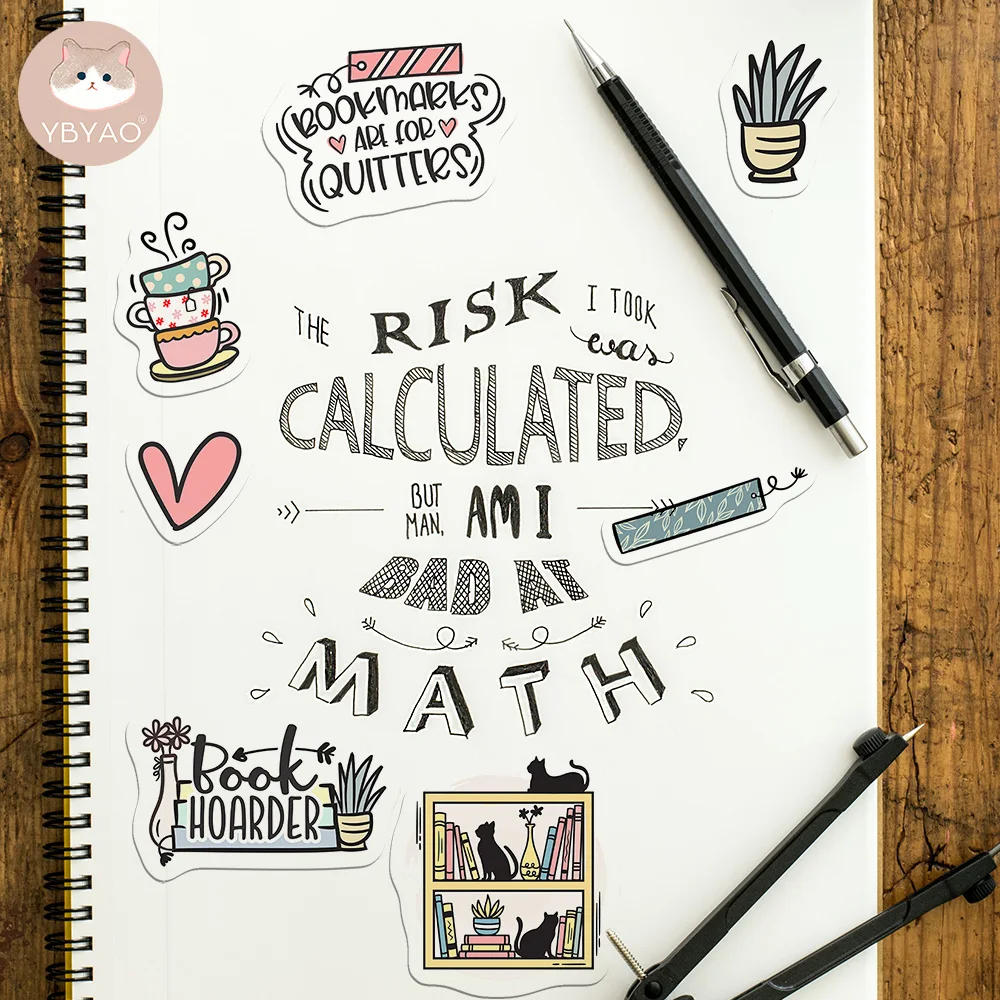 YBYAO®
BOOKMARKS
ARE FOR
QUITTERS
THE RISK I TOOK
was
CALCULATED,
BUT
MAN, AM I
BAD AT
MATH
Book
HOARDER